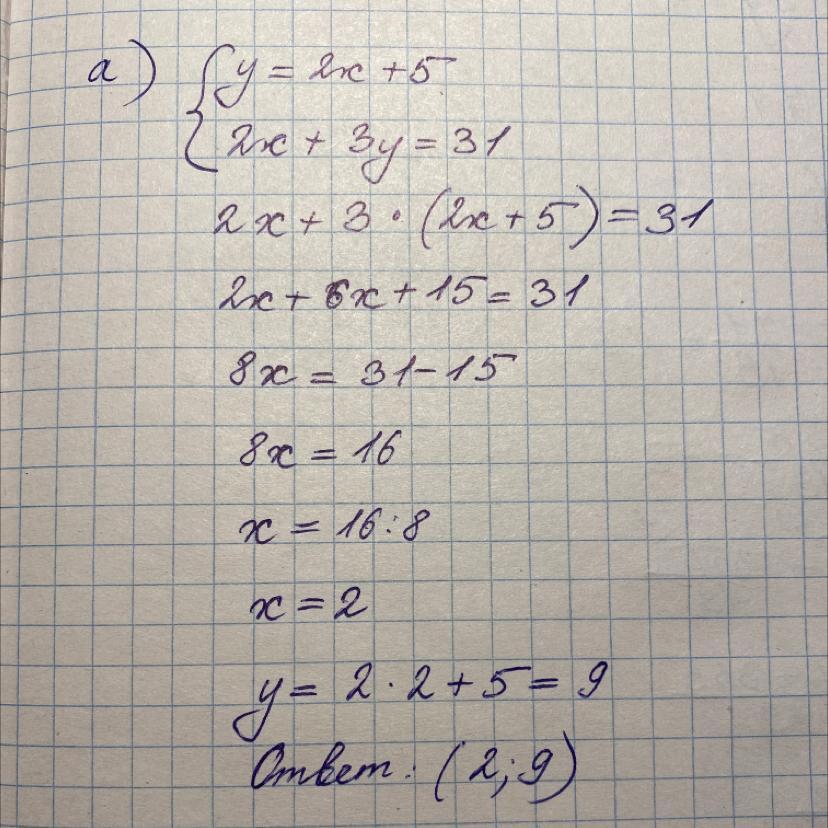 а) { y = 2x + 5
2x + 3y = 31
2x + 3 · (2x + 5) = 31
2x + 6x + 15 = 31
8x = 31 - 15
8x = 16
x = 16 : 8
x = 2
y = 2 · 2 + 5 = 9
Ответ: (2; 9)